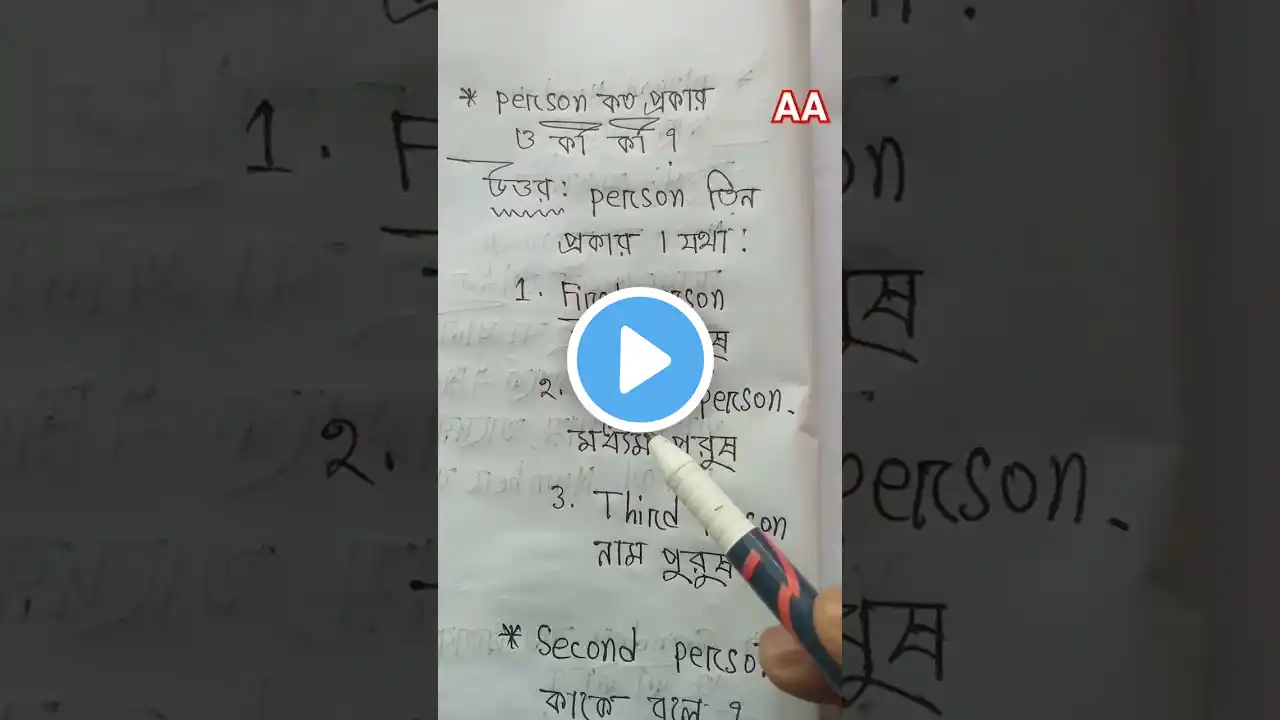 * person কত প্রকার
ও কী কী ?
AA
উত্তর : person তিন
প্রকার । যথা :
1. First person
২. person.
মধ্যম পুরুষ
3. Third person
নাম পুরুষ
* Second person
কাকে বলে ?